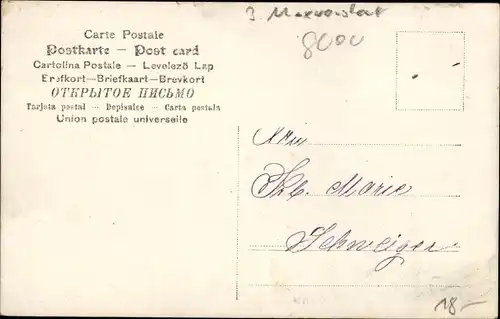 Carte Postale
Postkarte — Post card
Cartolina Postale — Levelező Lap
Brefkort—Briefkaart—Brevkort
ОТКРЫТОЕ ПИСЬМО
Tarjeta postal — Dopisnice — Carta postala
Union postale universelle
3
8000
Marie
Schweiger
18.-